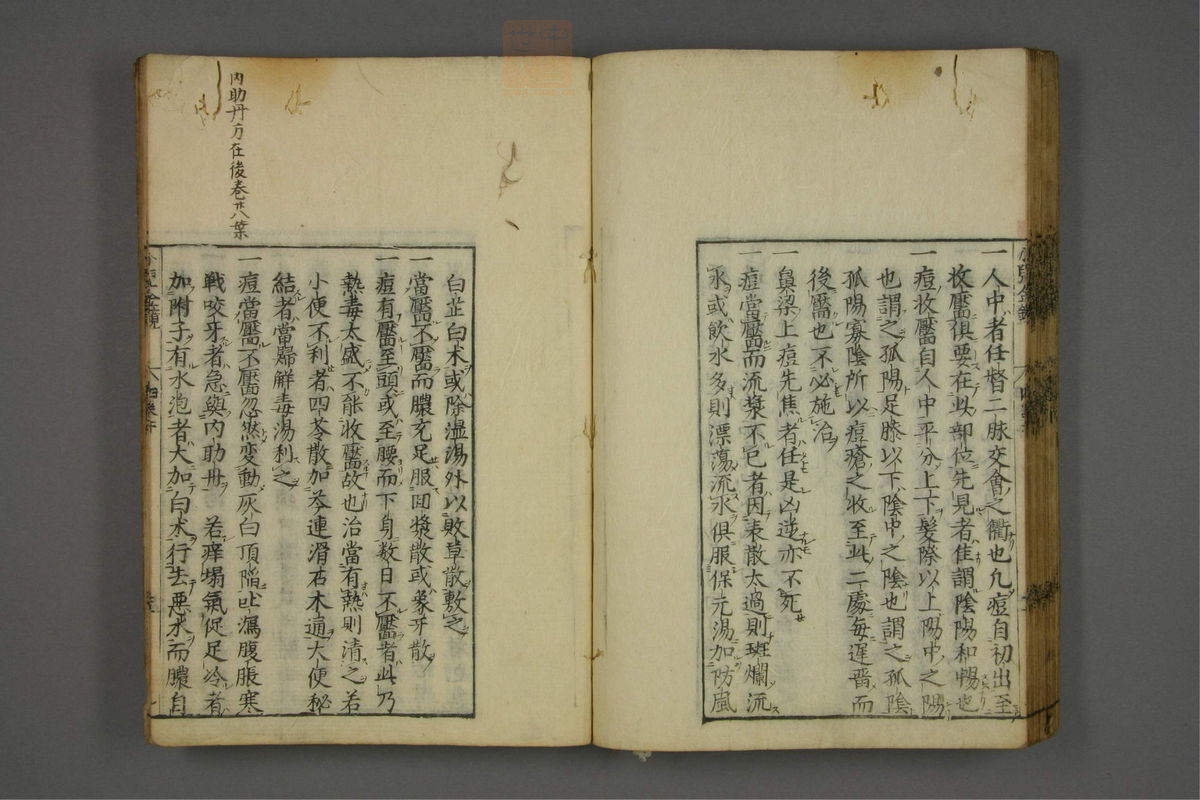 一人中者任督二脉交會之衢也凡痘自初出至
收靨俱要在此部位先見者佳謂陰陽和暢也
一痘收靨自人中平分上下髮際以上陽中之陽
也謂之孤陽足膝以下陰中之陰也謂之孤陰
孤陽寡陰所以痘瘡之收至此二處每遲晋而
後靨也不必施治
一鼻梁上痘先焦者任是凶逆亦不死
一痘當靨而流漿不已者因表散太過則斑爛流
水或飲水多則漂蕩流水俱服保元湯加防風
白芷白朮或除湿湯外以敗草散敷之
一當靨不靨而膿充足服回漿散或象牙散
一痘有靨至頭或至腰而下身数日不靨者此乃
熱毒太盛不能收靨故也治當有熱則清之若
小便不利者四苓散加芩連滑石木通大便秘
結者當歸解毒湯利之
一痘當靨不靨忽然変動灰白頂陥吐瀉腹脹寒
戰咬牙者急與内助丹 若痒塌氣促足冷者
加附子有水泡者大加白朮行去悪水而膿自
内助丹方在後巻廿八葉